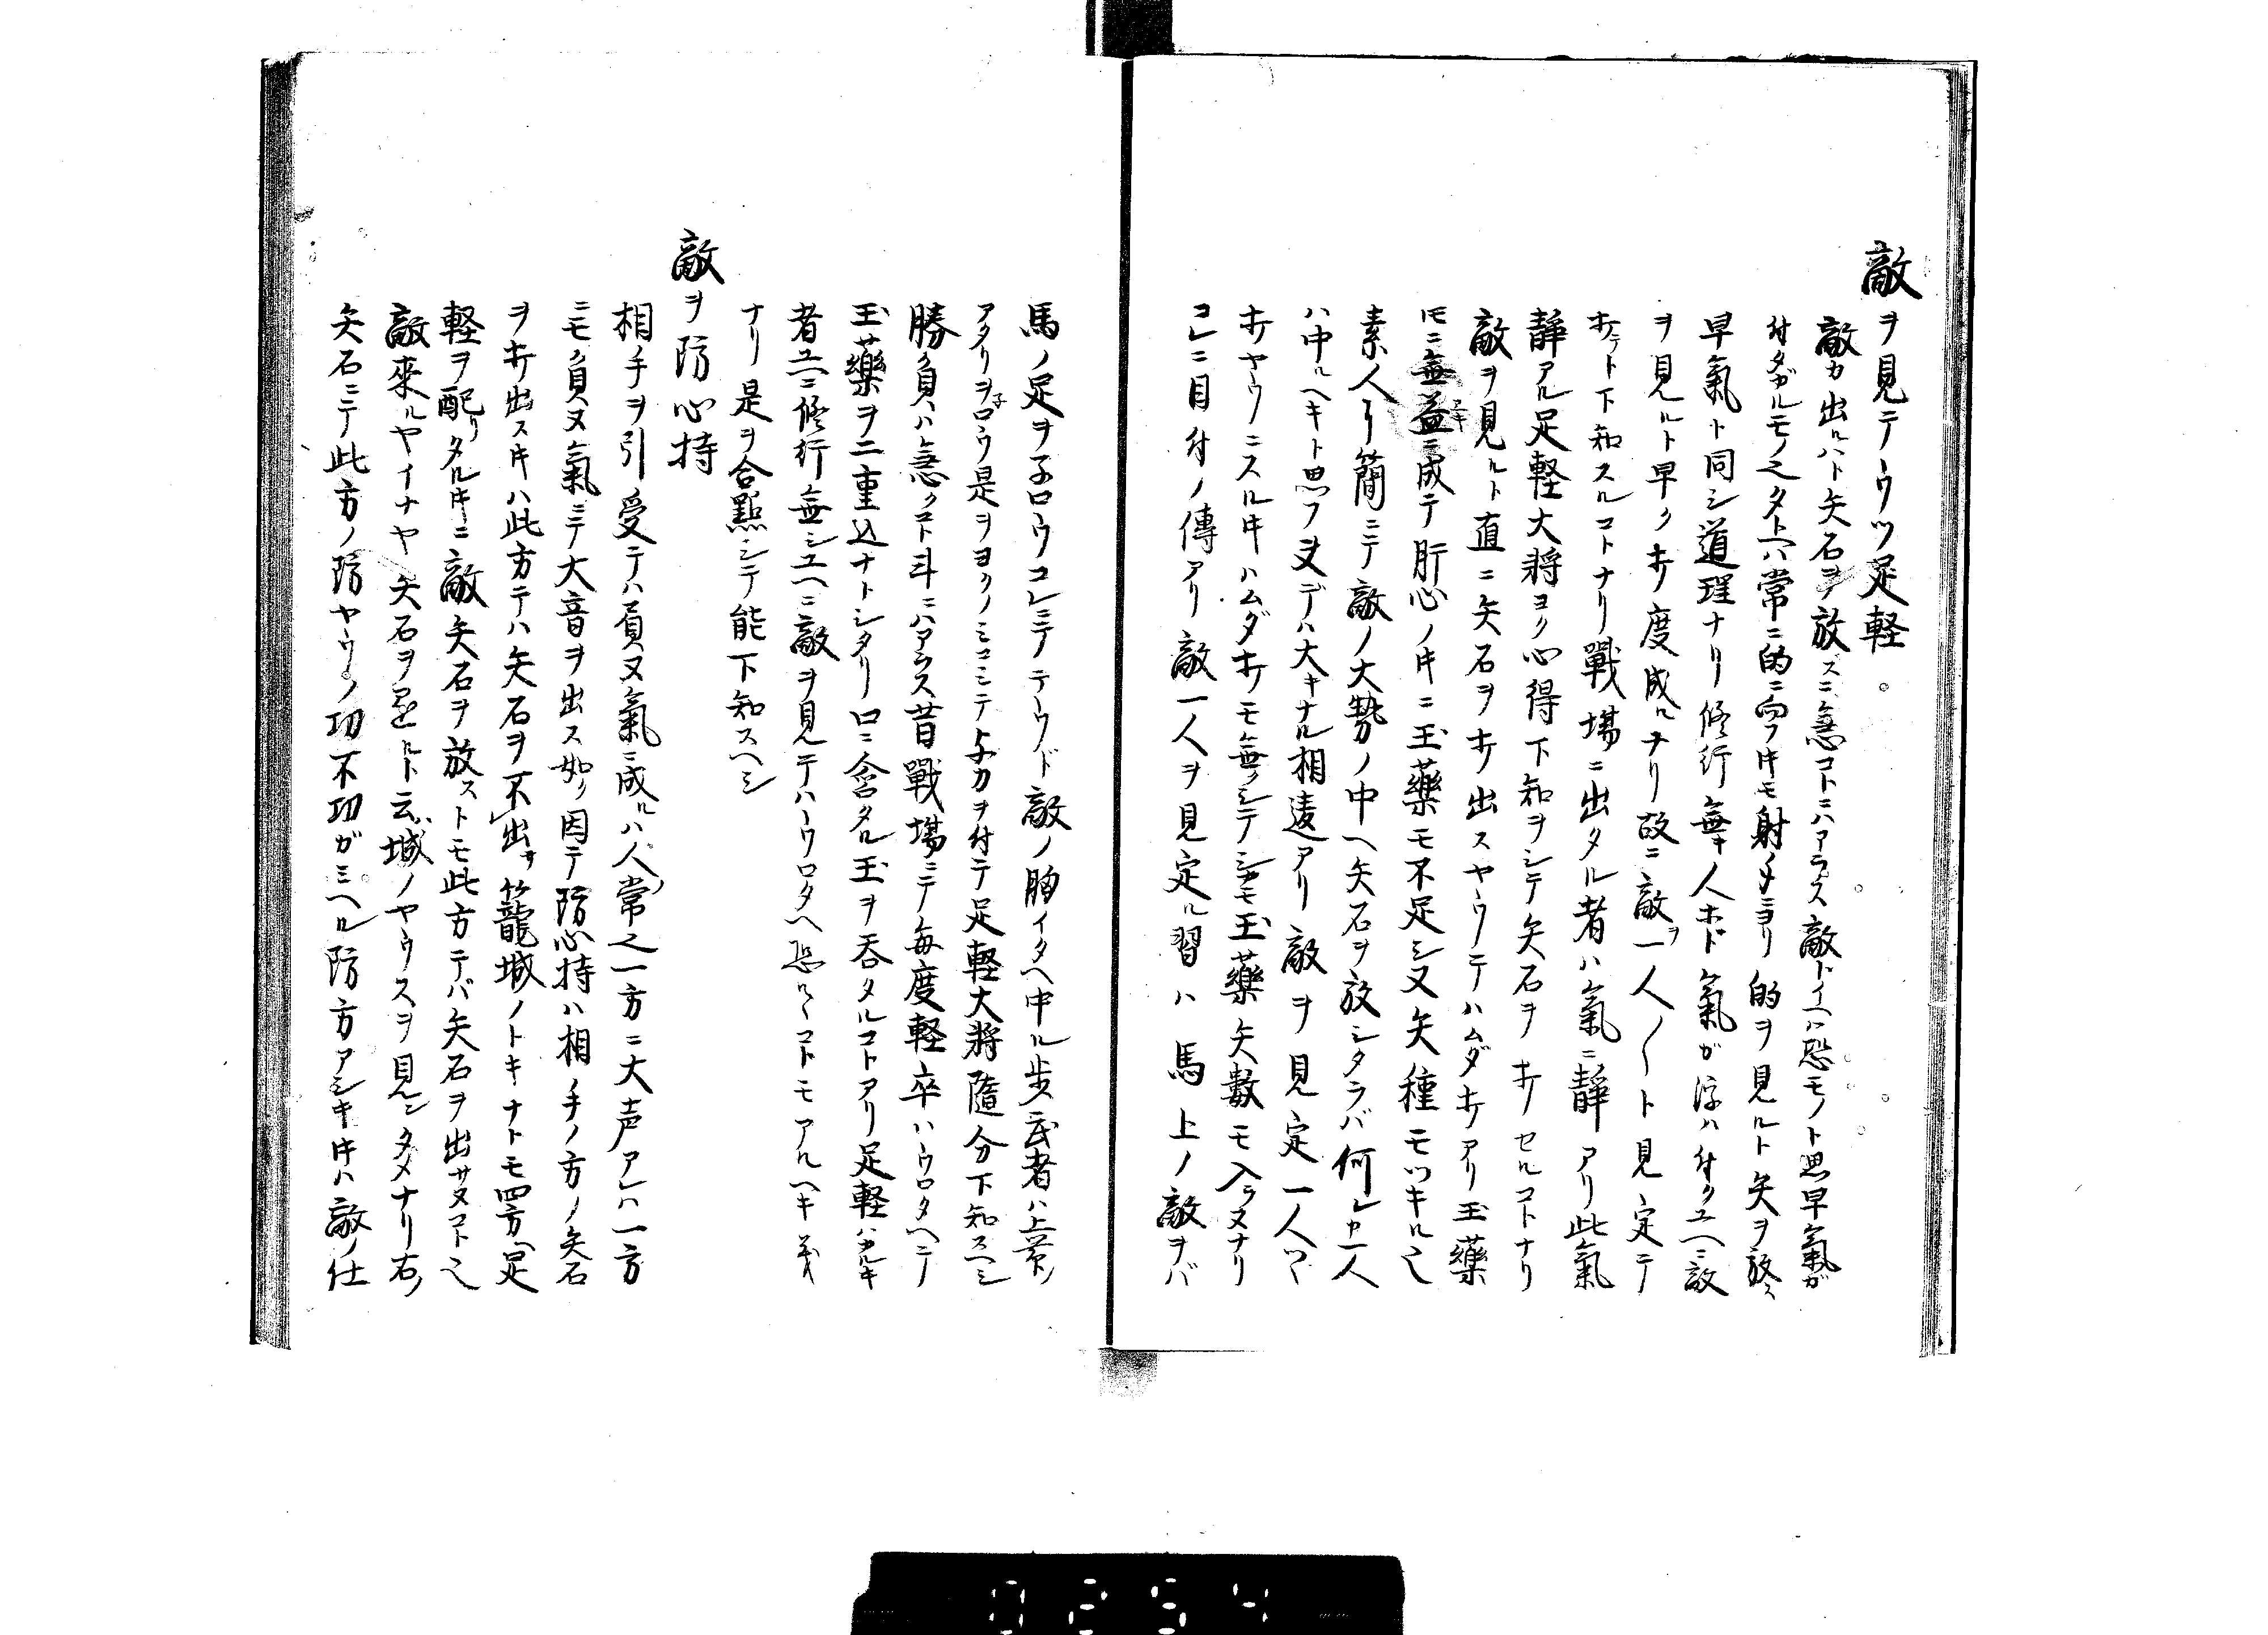 敵ヲ見テウツ足軽
敵カ出ルハト矢石ヲ放スニ急コトニハアラス敵トイヘハ恐モノト思早氣ガ
付タガルモノ之タトヘハ常ニ的ニ向フ𪜈モ射手ニヨリ的ヲ見ルト矢ヲ放ス
早氣ト同シ道理ナリ修行無キ人ホド氣ガ浮ハ付クユヘニ敵
ヲ見ルト早ク打度成ルナリ故ニ敵ヲ一人〱ト見定テ
打テト下知スルコトナリ戰場ニ出タル者ハ氣ニ靜アリ此氣
靜アル足軽大將ヨク心得下知ヲシテ矢石ヲ打セルコトナリ
敵ヲ見ルト直ニ矢石ヲ打出スヤウテハムダ打アリ玉藥
𪜈ニ無益ニ成テ肝心ノ𪜈ニ玉藥モ不足シ又矢種モツキル之
素人ノ了簡ニテ敵ノ大勢ノ中ヘ矢石ヲ放シタラバ何レカ一人
ハ中ルヘキト思フ夫デハ大キナル相違アリ敵ヲ見定一人ツヽ
打ヤウニスル𪜈ハムダ打モ無クシテシカモ玉藥矢數モ入ラヌナリ
コレニ目付ノ傳アリ敵一人ヲ見定ル習ハ馬上ノ敵ヲバ
馬ノ足ヲ子ロウコレニテテウド敵ノ胸イタヘ中ル歩武者ハ上帯ノ
アタリヲ子ロウ是ヲヨクノミコミテ与力ヲ付テ足軽大將隨分下知スヘシ
勝負ハ急クコト斗ニハアラス昔戰場ニテ毎度軽卒ハウロタヘテ
玉藥ヲ二重込ナトシタリ口ニ含タル玉ヲ呑タルコトアリ足軽ハカルキ
者ユヘニ修行無シユヘニ敵ヲ見テハウロタヘ恐ルヽコトモアルヘキ義
ナリ是ヲ合點シテ能下知スヘシ
敵ヲ防心持
相手ヲ引受テハ負ヌ氣ニ成ルハ人ノ常之一方ニ大声アレハ一方
ニモ負ヌ氣ニテ大音ヲ出ス如ク因テ防心持ハ相手ノ方ノ矢石
ヲ打出ス𪜈ハ此方テハ矢石ヲ不出サ籠城ノトキナトモ四方ヘ足
軽ヲ配リタル𪜈ニ敵矢石ヲ放ストモ此方テバ矢石ヲ出サヌコト之
敵來ルヤイナヤ矢石ヲ放ルト云ハ城ノヤウスヲ見ンタメナリ右ノ
矢石ニテ此方ノ防ヤウノ功不功ガミヘル防方アシキ𪜈ハ敵ノ仕